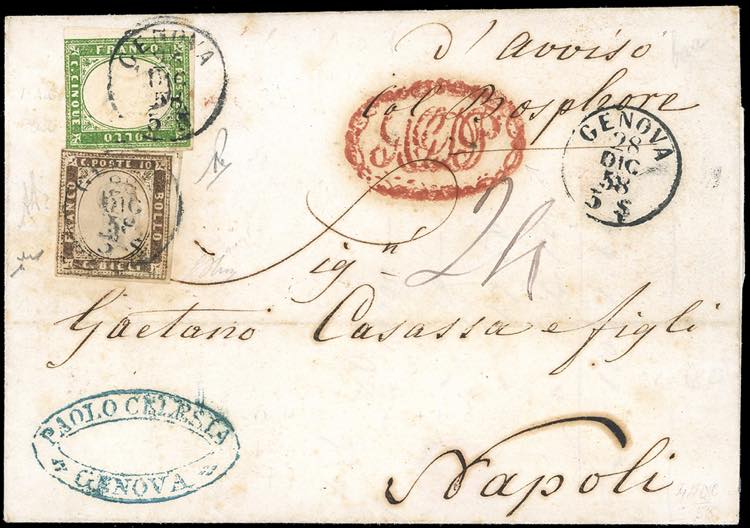 FRANCO
C. POSTE
C. CINQUE
BOLLO
GENOVA
C. POSTE 10
FRANCO
BOLLO
C. DIECI
d'avviso
Col Bosphore
GENOVA
28
DIC
58
24
Sig.ri
Gaetano Casassa e figli
Napoli
PAOLO CELESIA
GENOVA